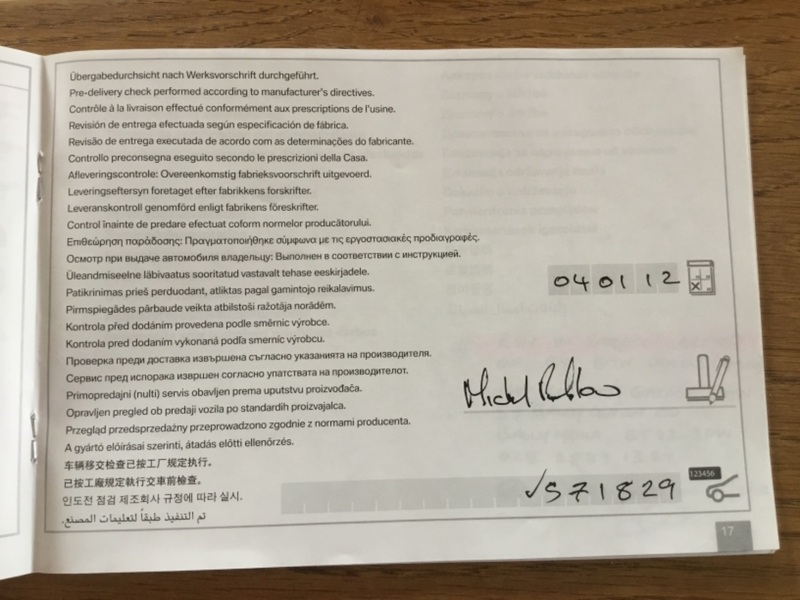 Übergabedurchsicht nach Werksvorschrift durchgeführt.
Pre-delivery check performed according to manufacturer's directives.
Contrôle à la livraison effectué conformément aux prescriptions de l'usine.
Revisión de entrega efectuada según especificación de fábrica.
Revisão de entrega executada de acordo com as determinações do fabricante.
Controllo preconsegna eseguito secondo le prescrizioni della Casa.
Afleveringscontrole: Overeenkomstig fabrieksvoorschrift uitgevoerd.
Leveringseftersyn foretaget efter fabrikkens forskrifter.
Leveranskontroll genomförd enligt fabrikens föreskrifter.
Control înainte de predare efectuat coform normelor producătorului.
Επιθεώρηση παράδοσης: Πραγματοποιήθηκε σύμφωνα με τις εργοστασιακές προδιαγραφές.
Осмотр при выдаче автомобиля владельцу: Выполнен в соответствии с инструкцией.
Üleandmiseelne läbivaatus sooritatud vastavalt tehase eeskirjadele.
Patikrinimas prieš perduodant, atliktas pagal gamintojo reikalavimus.
Pirmspiegādes pārbaude veikta atbilstoši ražotāja norādēm.
Kontrola před dodáním provedena podle směrnic výrobce.
Kontrola pred dodaním vykonaná podľa smerníc výrobcu.
Проверка преди доставка извършена съгласно указанията на производителя.
Сервис пред испорака извршен согласно упатствата на производителот.
Primopredajni (nulti) servis obavljen prema uputstvu proizvođača.
Opravljen pregled ob predaji vozila po standardih proizvajalca.
Przegląd przedsprzedażny przeprowadzono zgodnie z normami producenta.
A gyártó előírásai szerinti, átadás előtti ellenőrzés.
车辆移交检查已按工厂规定执行。
已按工廠規定執行交車前檢查。
인도전 점검 제조회사 규정에 따라 실시.
تم التنفيذ طبقاً لتعليمات المصنع.
040112
123456
571829
17